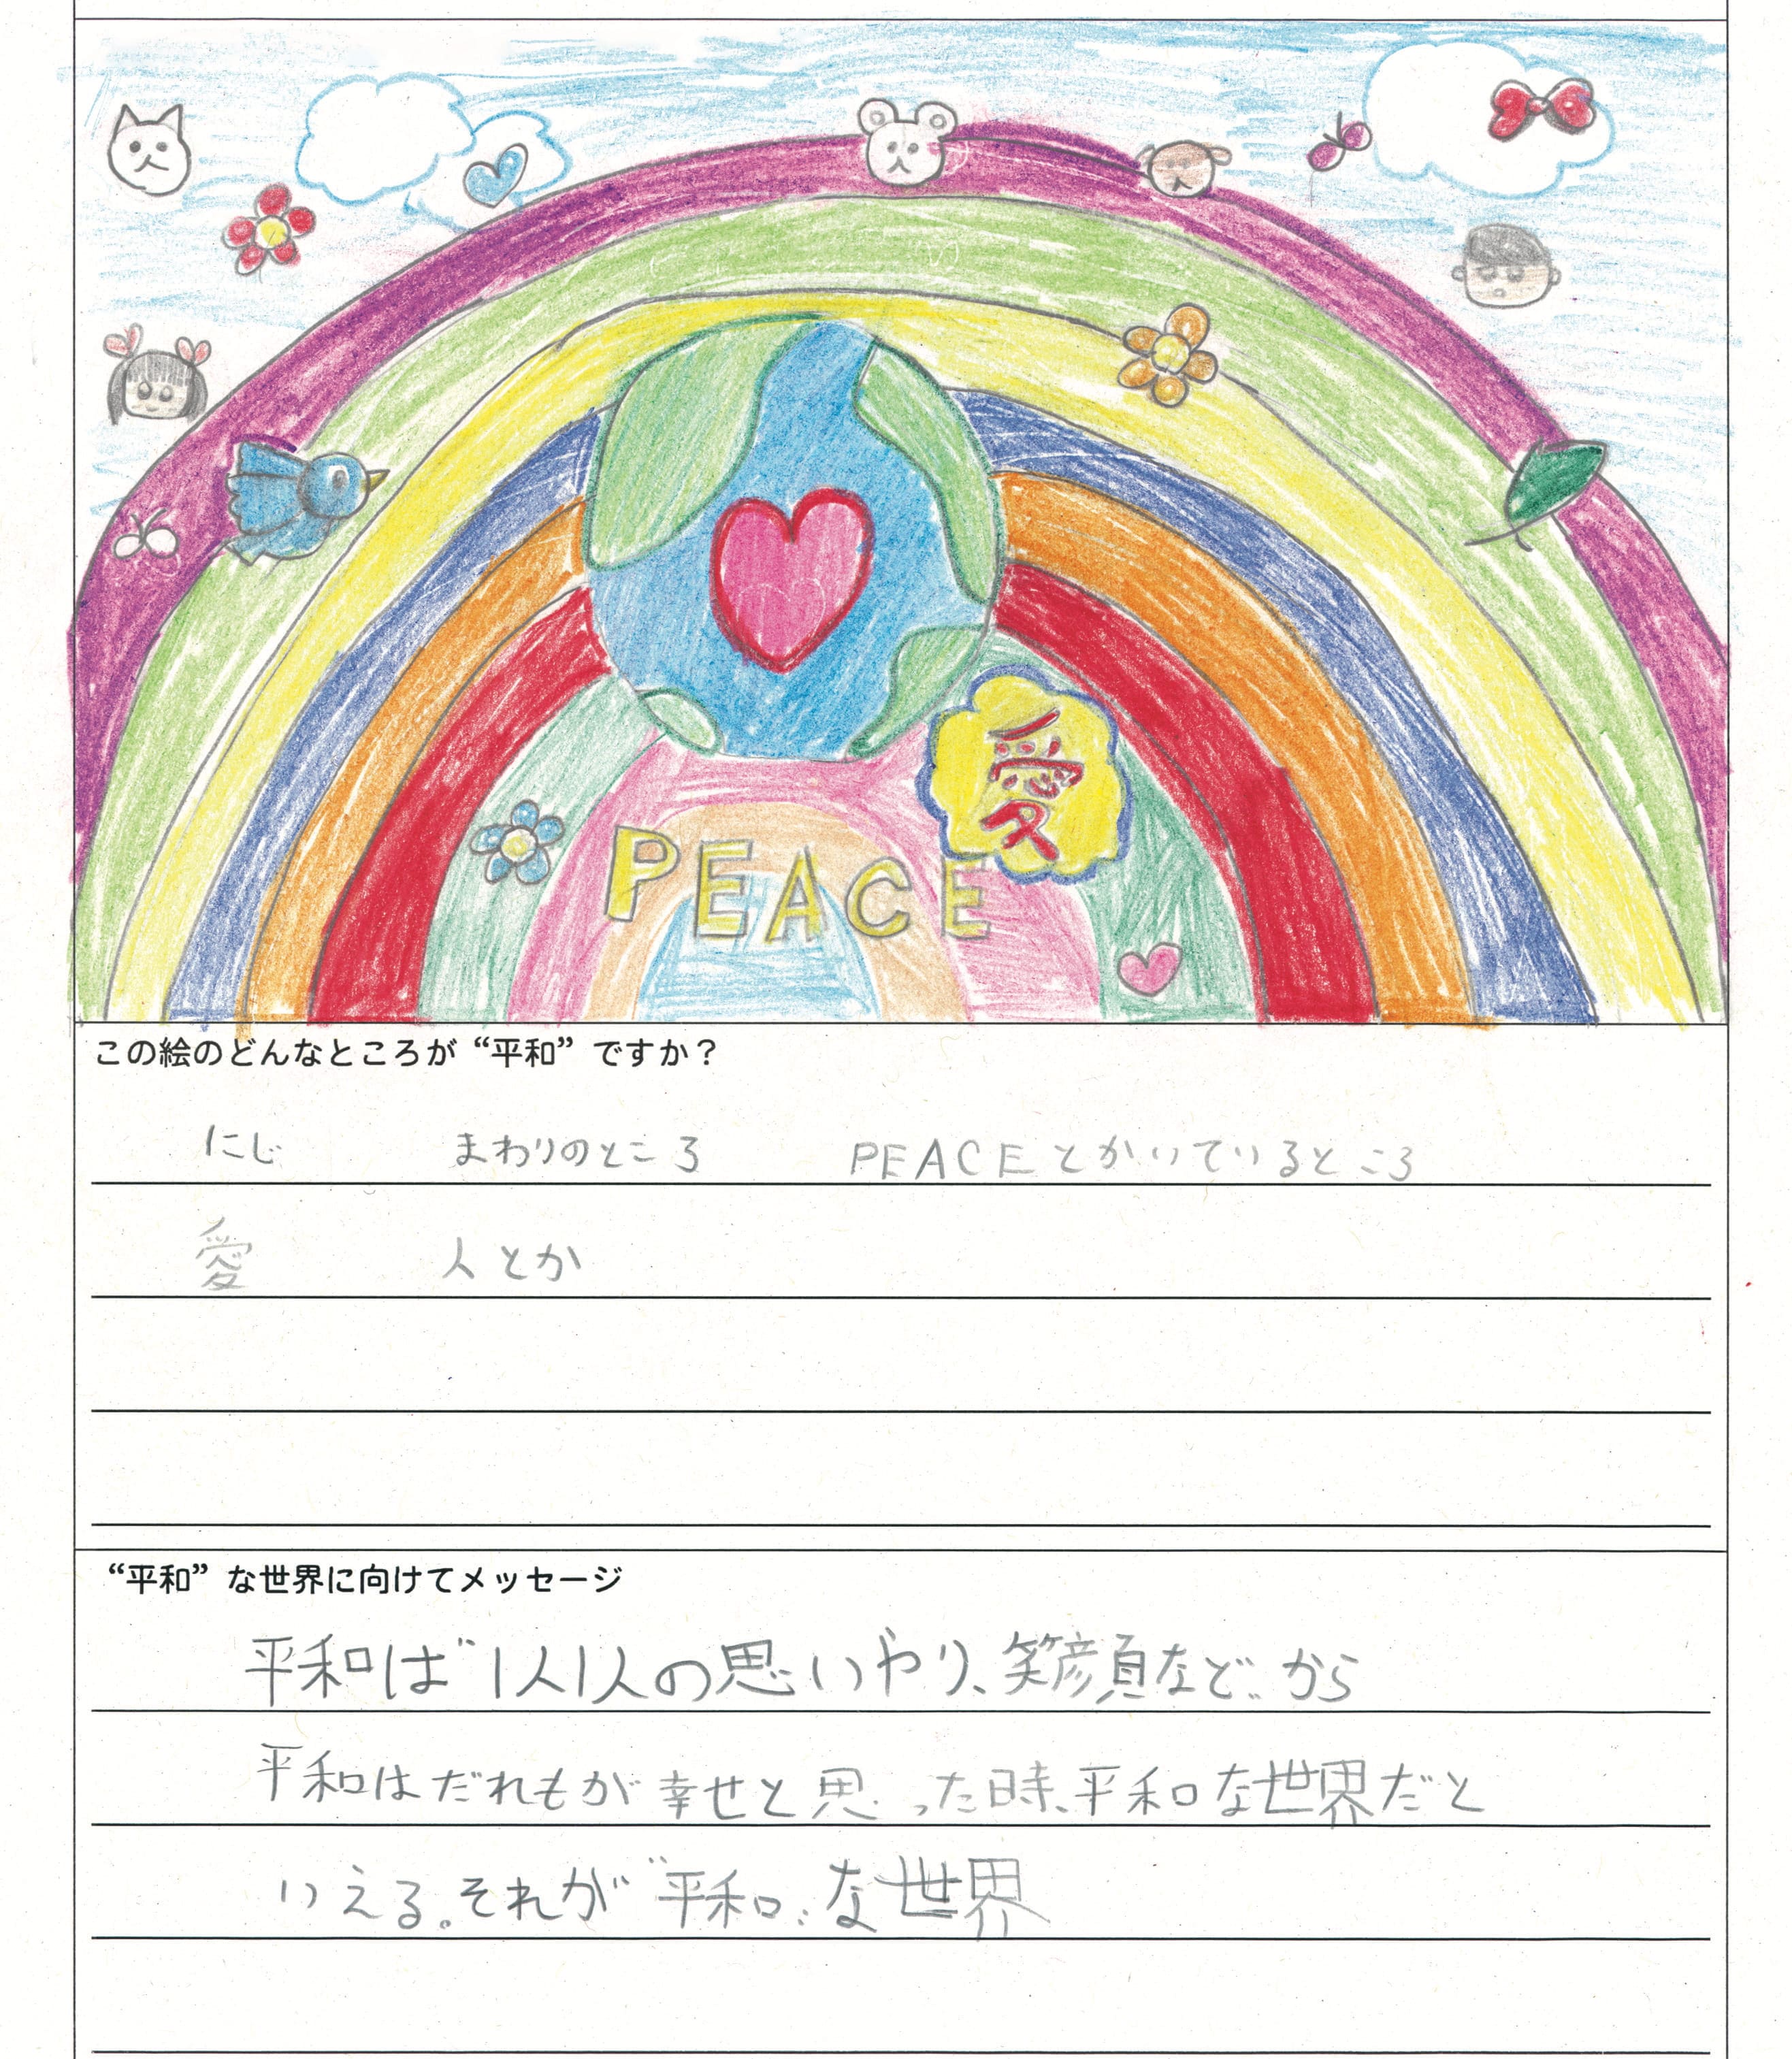 愛
PEACE
この絵のどんなところが“平和”ですか？
にじ　まわりのところ　PEACEとかいているところ
愛　人とか
“平和”な世界に向けてメッセージ
平和は“1人1人の思いやり、笑顔など〟から
平和はだれもが幸せと思った時、平和な世界だと
いえる。それが“平和〟な世界